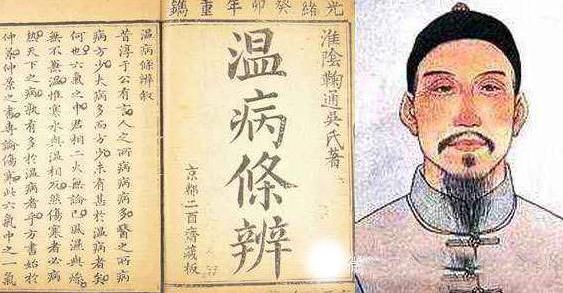 光緒癸卯年重鐫
淮陰鞠通吳氏著
温病條辨
京都二酉齋藏板
温病條辨敘
昔淳于公有言人之所病病病多醫之所病
病方少夫病多而方少未有甚於温病者矣
何也六氣之中君相二火無論已風濕與燥
無不兼温惟寒水與温相反然傷寒者必病
熱天下之病孰有多於温病者乎方書始於
仲景仲景之書專論傷寒此六氣中之一氣